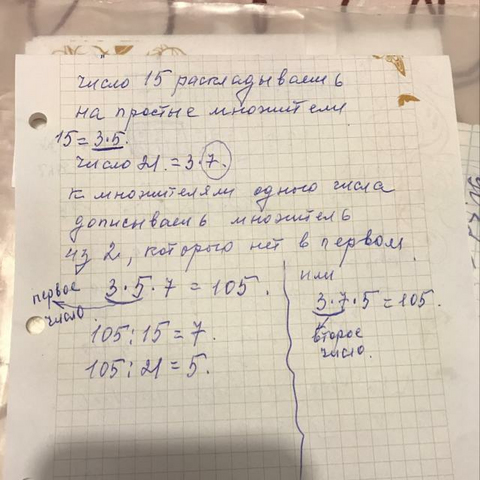 число 15 раскладываешь
на простые множители
15 = 3·5.
число 21 = 3·7.
к множителям одного числа
дописываешь множитель
из 2, которого нет в первом.
3·5·7 = 105.
первое
число.
105:15 = 7.
105:21 = 5.
или
3·7·5 = 105.
второе
число.